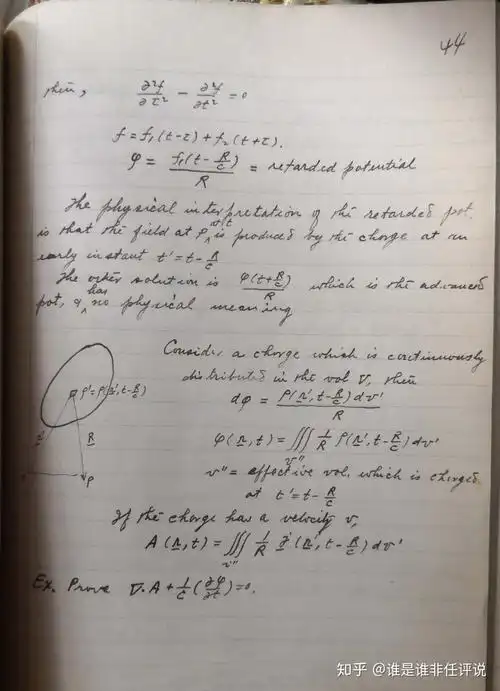 44
then, ∂²f/∂τ² - ∂²f/∂t² = 0
f = f₁(t-τ) + f₂(t+τ).
φ = f₁(t - R/c)/R = retarded potential
The physical interpretation of the retarded pot.
is that the field at P at t is produced by the charge at an
early instant t' = t - R/c
The other solution is φ(t+R/c)/R which is the advanced
pot, & has no physical meaning
Consider a charge which is continuously
distributed in the vol V, then
dφ = ρ(r', t-R/c)dv'/R
ρ' = ρ(r', t-R/c)
φ(r, t) = ∭ᵥ″ 1/R ρ(r', t-R/c)dv'
r'
R
P
v″ = effective vol. which is charged
at t' = t - R/c
If the charge has a velocity v,
A(r, t) = ∭ᵥ″ 1/R j(r', t-R/c)dv'
Ex. Prove ∇·A + 1/c(∂φ/∂t) = 0.
知乎 @谁是谁非任评说